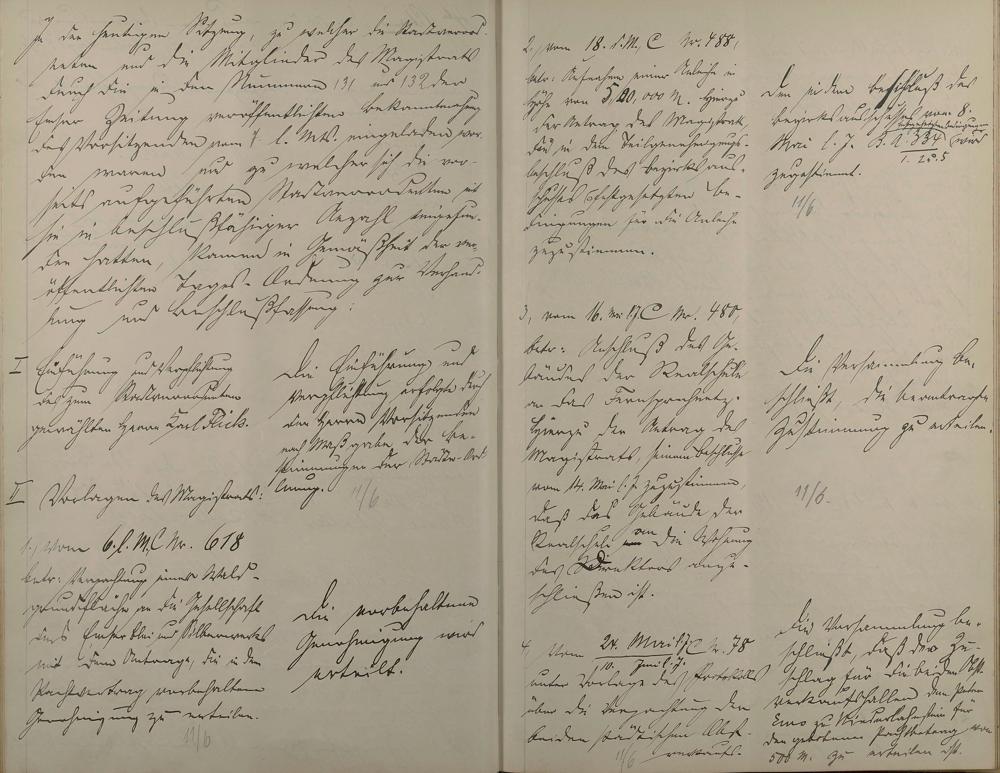 In der heutigen Sitzung, zu welcher die Stadtverord-
neten und die Mitglieder des Magistrats
durch die in den Nummern 131 und 132 der
Emser Zeitung veröffentlichten Bekanntmachung
des Vorsitzenden vom 7. l. Mts. eingeladen wor-
den waren und zu welcher sich die vor-
seits aufgeführten Stadtverordneten
in beschlußfähiger Anzahl eingefun-
den hatten, kamen in Gemäßheit der ver-
öffentlichten Tages-Ordnung zur Verhand-
lung und Beschlußfassung:
I Einführung und Verpflichtung
des zum Stadtverordneten
gewählten Herrn Karl Flick.
Die Einführung und
Verpflichtung erfolgte durch
den Herrn Vorsitzenden
nach Maßgabe der Be-
stimmungen der Städte-Ord-
nung.
11/6
II Vorlagen des Magistrats:
1.) vom 6. l. M. C Nr. 618
betr: Verpachtung einer Wald-
grundfläche an die Gesellschaft
des Emser Blei und Silberwerks
mit dem Antrage, die in dem
Pachtvertrag vorbehaltene
Genehmigung zu erteilen.
11/6
Die vorbehaltene
Genehmigung wird
erteilt.
2.) vom 18. v. M., C Nr. 488,
betr: Aufnahme einer Anleihe in
Höhe von 500,000 M. Hierzu
der Antrag des Magistrats,
den in dem Teilgenehmigungs-
beschluß des Bezirksaus-
schusses festgesetzten Be-
dingungen für die Anleihe
zuzustimmen.
Den in dem Beschluß des
Bezirksausschusses vom 8.
Mai l. J. B.A. 334 wird
zugestimmt.
11/6
3, vom 16. Mai C Nr. 480,
betr: Anschluß des Ge-
bäudes der Realschule
an das Fernsprechnetz.
Hierzu der Antrag des
Magistrats, seinem Beschlusse
vom 14. Mai l. J. zuzustimmen,
daß das Gebäude der
Realschule an die Wohnung
des Direktors anzu-
schließen ist.
Die Versammlung be-
schließt, die beantragte
Zustimmung zu erteilen.
11/6.
4, vom 24. Mai C Nr. 78
10. Juni l. J.
unter Vorlage des Protokolls
über die Verpachtung der
beiden städtischen Obst-
verkaufs-
11/6
Die Versammlung be-
schließt, daß der Zu-
schlag für die beiden Obst-
verkaufshallen dem Peter
zu Niederlahnstein für
den gebotenen Pachtbetrag von
500 M. zu erteilen ist.